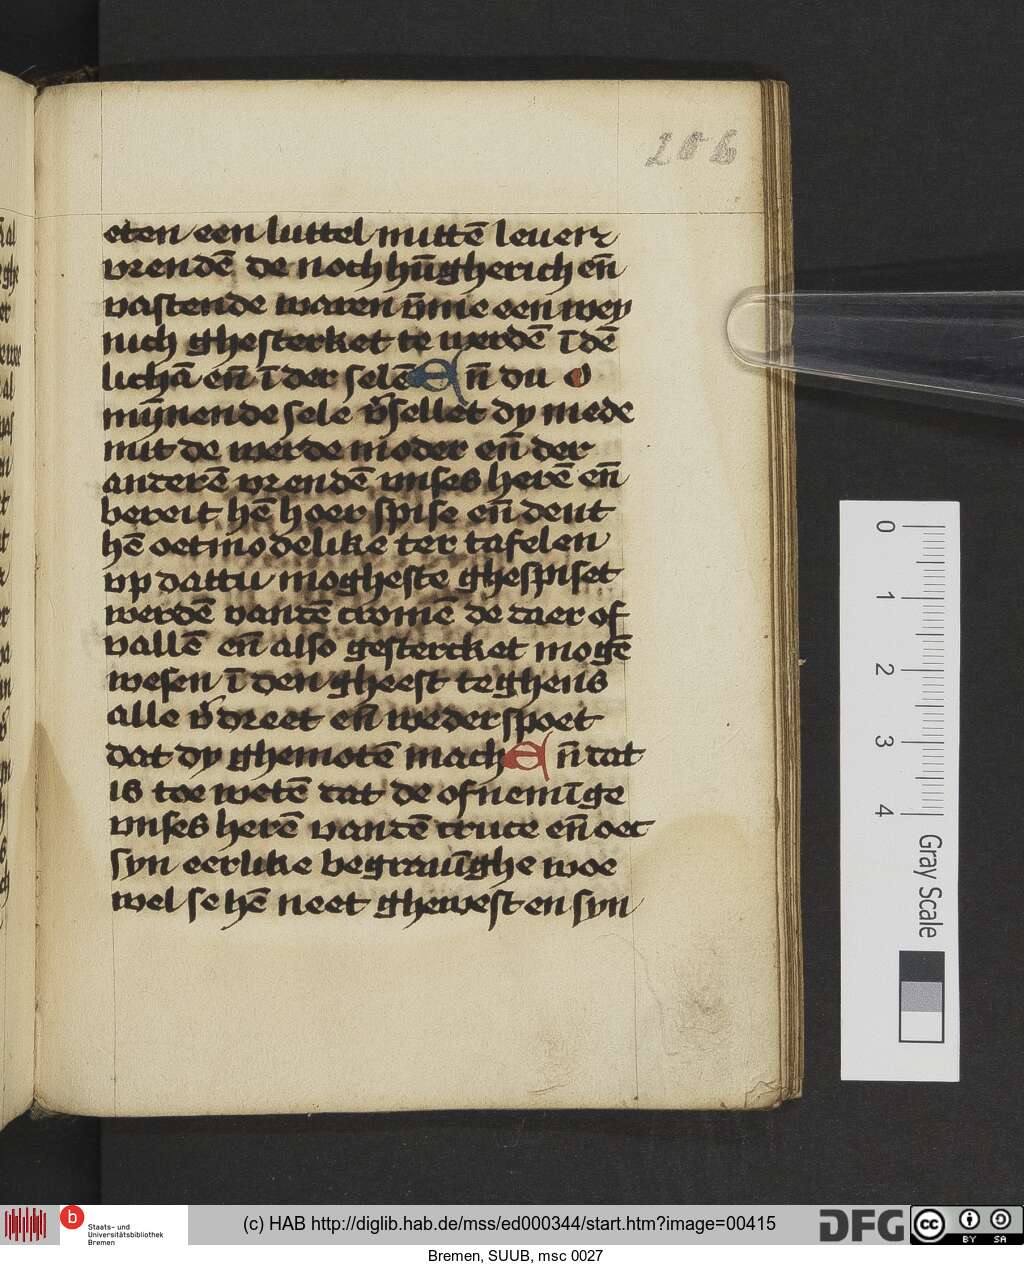 206
eten een luttel mittē leuen
vrendē de noch hūgherich en̄
vastende waren v̄me een wey
nich ghesterket te werdē ī dē
lichā en̄ ī der selē En̄ du o
mȳnende sele v̄sellet dy mede
mit de werde moder en̄ der
anterē vrendē vnses herē en̄
bereit hē hoer spise en̄ deut
hē oetmodelike ter tafelen
vp dattu mogheste ghespiset
werdē vantē cromē de daer of
vallē en̄ also gestercket mogē
wesen ī den gheest teghens
alle v̄dreet en̄ wederspoet
dat dy ghemotē mach En̄ dat
is toe wetē dat de ofnemīge
vnses herē vantē cruce en̄ oec
syn eerlike begrauīghe woe
wel se hē neet ghewest en syn
0
1
2
3
4
Gray Scale
b
Staats- und
Universitätsbibliothek
Bremen
(c) HAB http://diglib.hab.de/mss/ed000344/start.htm?image=00415
DFG
cc
BY SA
Bremen, SUUB, msc 0027